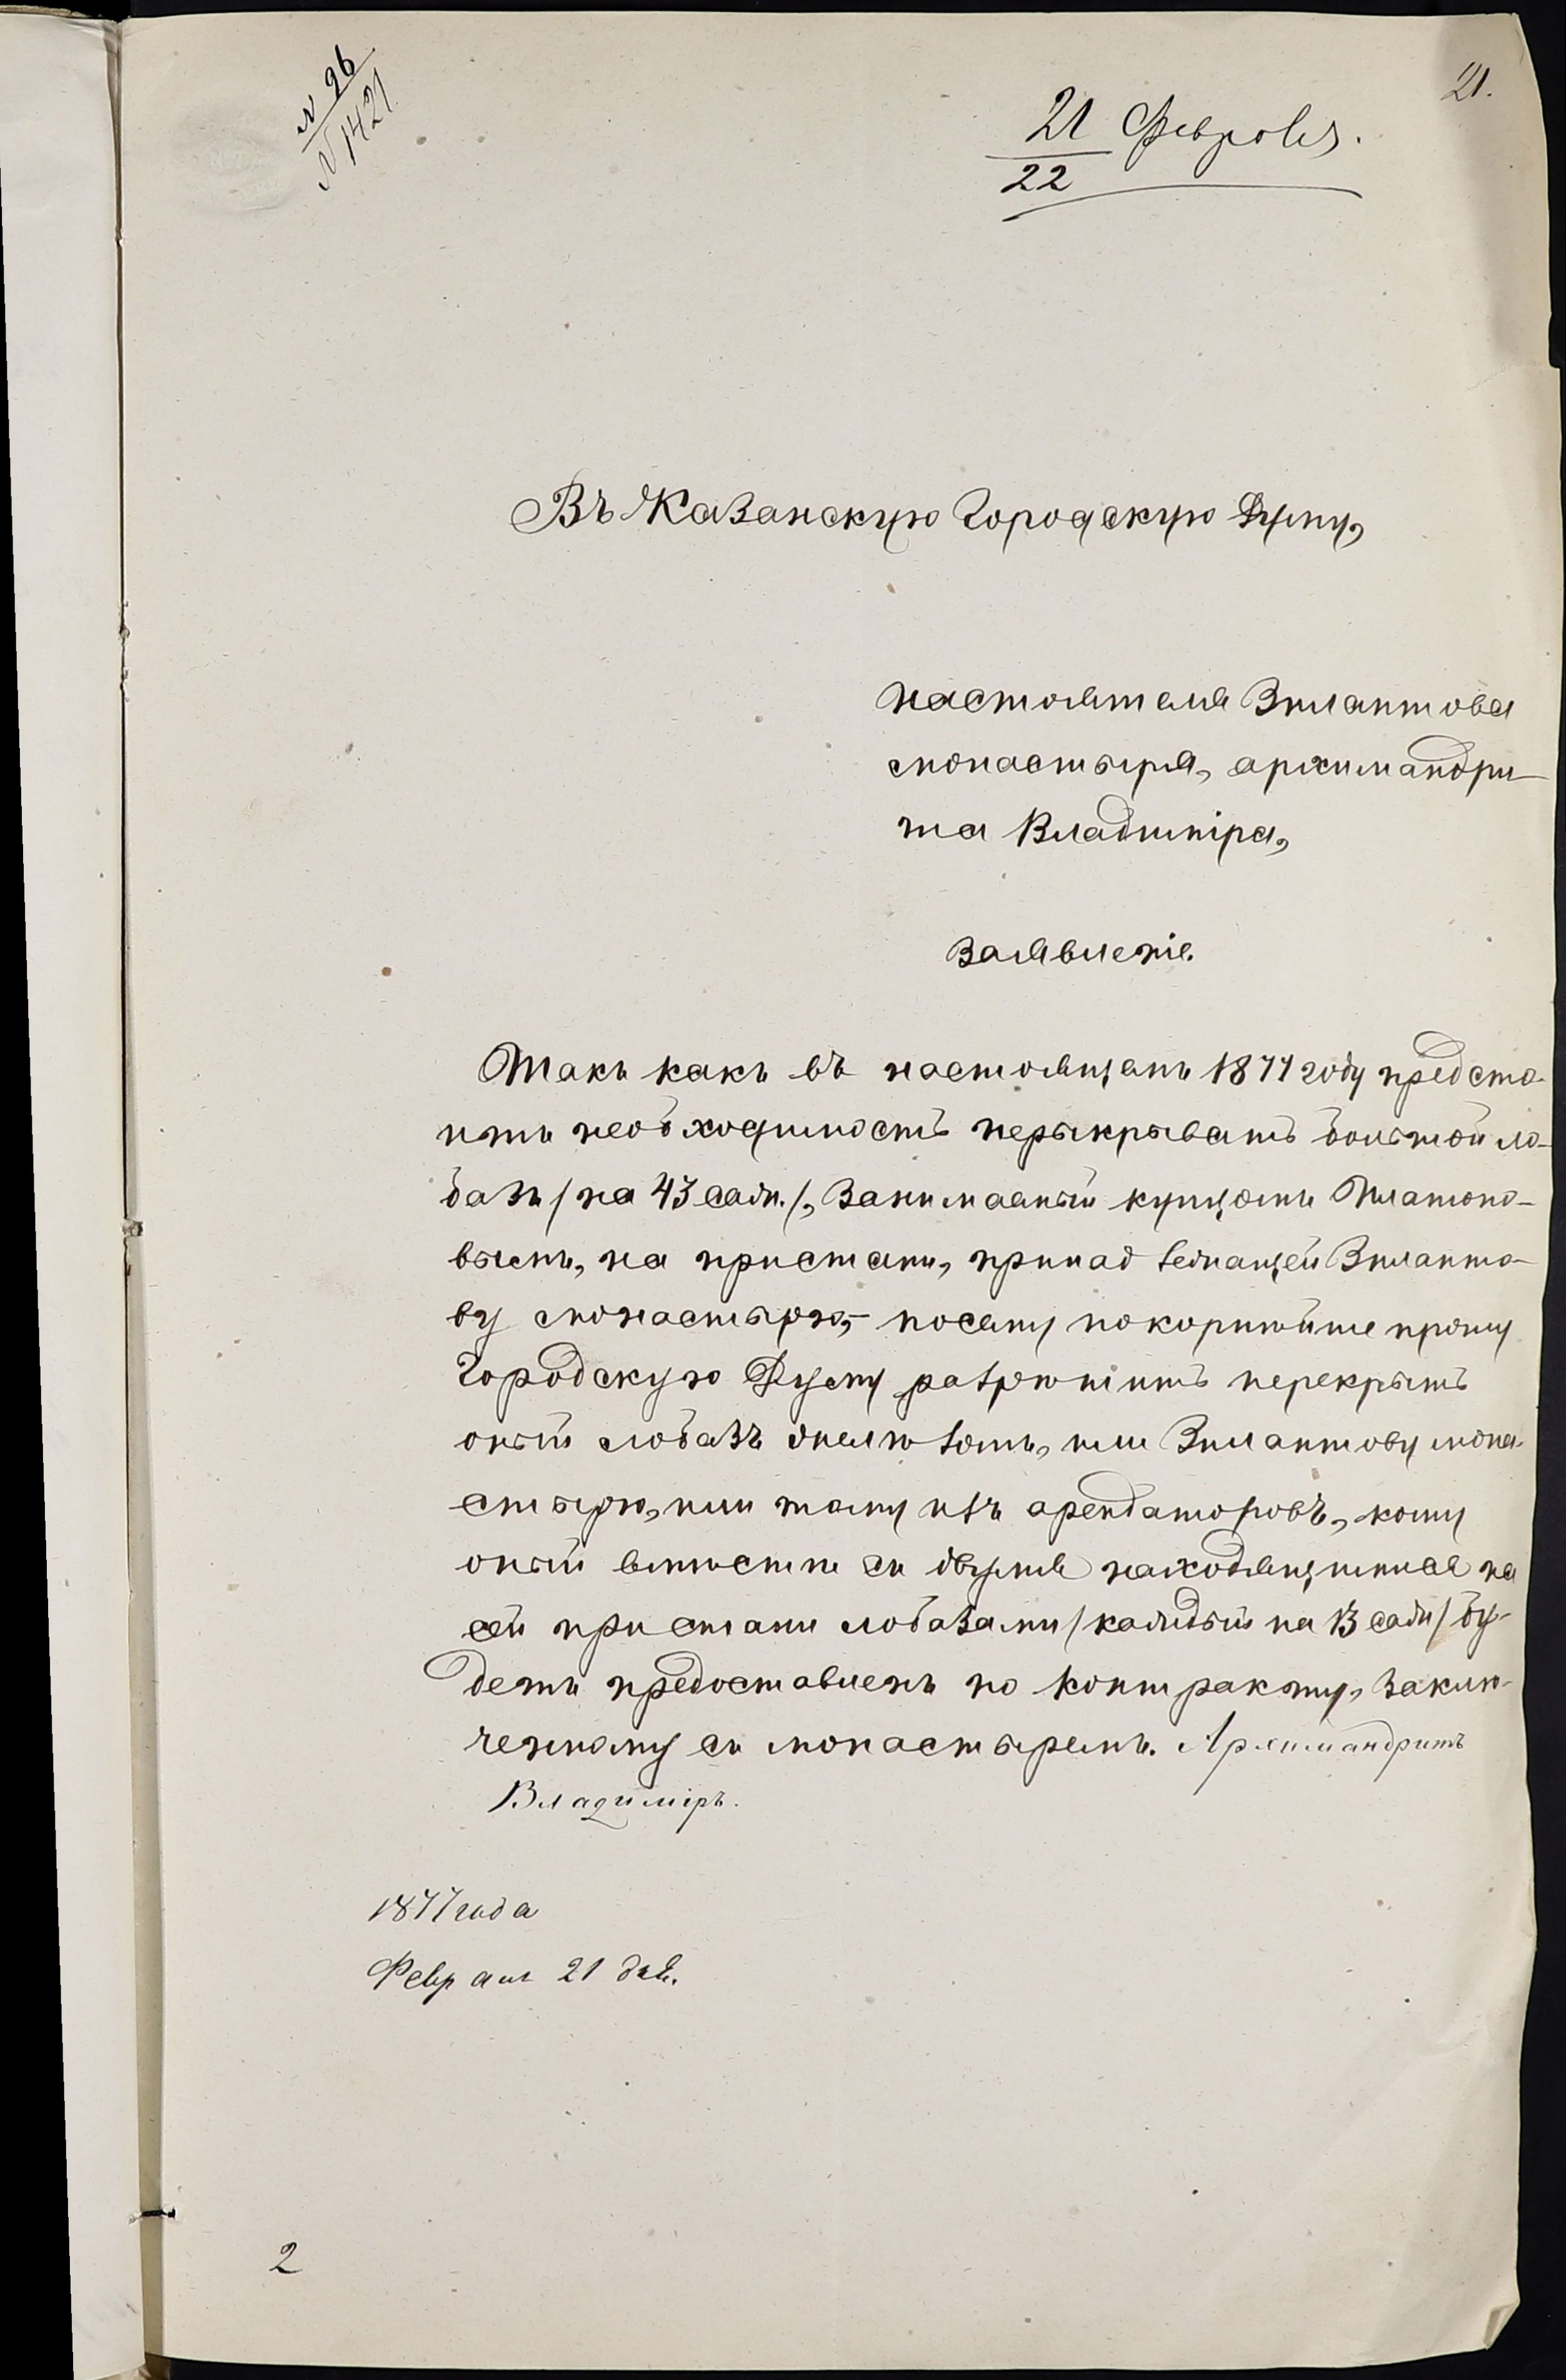 N 96
N 1421
21.
21 Февраля.
22
Въ Казанскую Городскую Думу,
настоятеля Зилантова
монастыря, архимандри-
та Владиміра,
Заявленіе.
Такъ какъ въ настоящемъ 1877 году предсто-
итъ необходимость перекрывать большой ло-
базъ /на 43 саж./, занимаемый купцомъ Платоно-
вымъ, на пристани, принадлежащей Зиланто-
ву монастырю,- посему покорнѣйше прошу
Городскую Думу разрѣшить перекрыть
оный лобазъ желѣзомъ, или Зилантову мона-
стырю, или тому изъ арендаторовъ, кому
оный вмѣстѣ съ двумя находящимися на
сей пристани лобазами /каждый на 13 саж/ бу-
детъ предоставленъ по контракту, заклю-
ченному съ монастыремъ. Архимандритъ
Владиміръ.
1877 года
Февраля 21 дня.
2